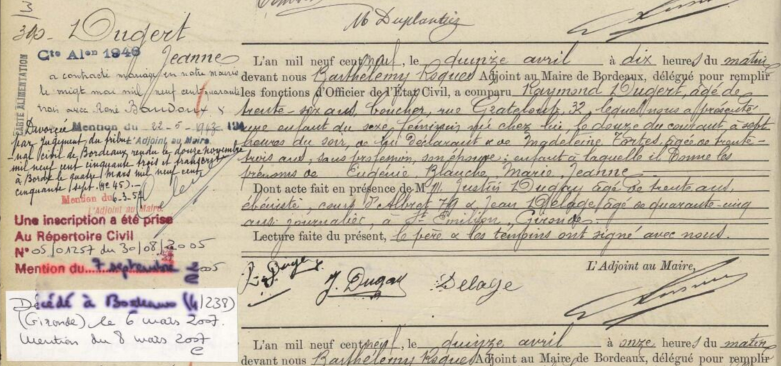 3
390 - Dugert
Jeanne
CARTE ALIMENTATION
Cte Alon 1946
a contracté mariage en notre mairie
le vingt mai mil neuf cent quarante
trois avec René Baudoux
Mention du 22-5-1943
L'Adjoint au Maire,
Divorcée
par jugement du tribu-
nal civil de Bordeaux, rendu le douze novembre
mil neuf cent cinquante trois et transcrit
à Bordx le quatre mars mil neuf cent
cinquante
Mention du 6.3.54
L'Adjoint au Maire
Une inscription a été prise
Au Répertoire Civil
N° 05/01257 du 30/08/2005
Mention du 7 septembre 2005
Décédé à Bordeaux (4/238)
(Gironde) le 6 mars 2007.
Mention du 8 mars 2007
M Duplantier
L'an mil neuf cent neuf, le quinze avril à dix heures du matin
devant nous Barthélemy Adjoint au Maire de Bordeaux, délégué pour remplir
les fonctions d'Officier de l'État Civil, a comparu Raymond Dugert, âgé de
trente-six ans, boucher, rue Grateloup, 32, lequel nous a présenté
une enfant du sexe féminin, née chez lui le douze du courant, à sept
heures du soir, de lui déclarant & de Magdeleine Fortes, âgée de trente-
trois ans, sans profession, son épouse; enfant à laquelle il donne les
prénoms de Eugénie Blanche, Marie Jeanne.
Dont acte fait en présence de MM. Justin Dugay, âgé de trente ans,
ébéniste, cours d'Albret 79 & Jean Delage, âgé de quarante-cinq
ans, journalier, à St Emilion, Gironde.
Lecture faite du présent, le père & les témoins ont signé avec nous.
L'Adjoint au Maire,
J. Dugay
Delage
L'an mil neuf cent neuf, le quinze avril à onze heures du matin
devant nous Barthélemy Adjoint au Maire de Bordeaux, délégué pour remplir